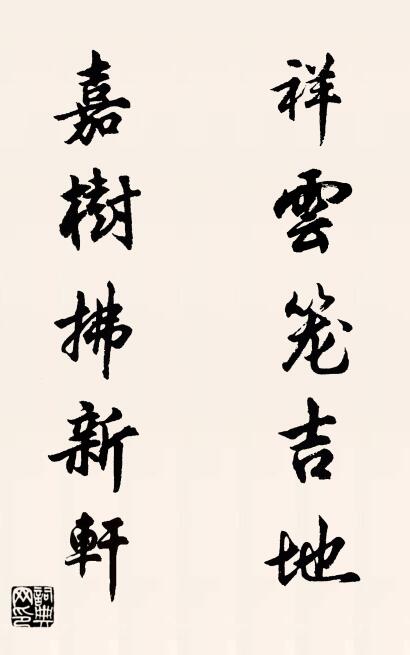 祥雲笼吉地
嘉樹拂新軒
詞典網印